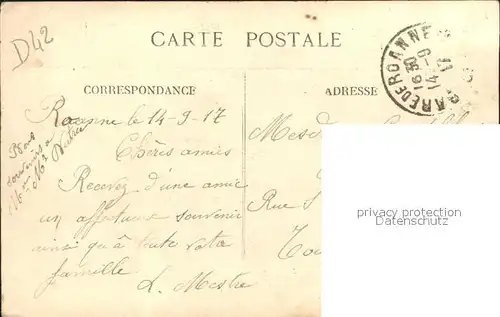 D42
CARTE POSTALE
GARE DE ROANNE
16 30
14-9
17
CORRESPONDANCE
ADRESSE
Roanne le 14-9-17
Chères amies
Recevez d'une amie
un affectueux souvenir
ainsi qu'à toute votre
famille
L. Mestre
Bons
souvenirs a
Rue
persönliche Daten
Datenschutz